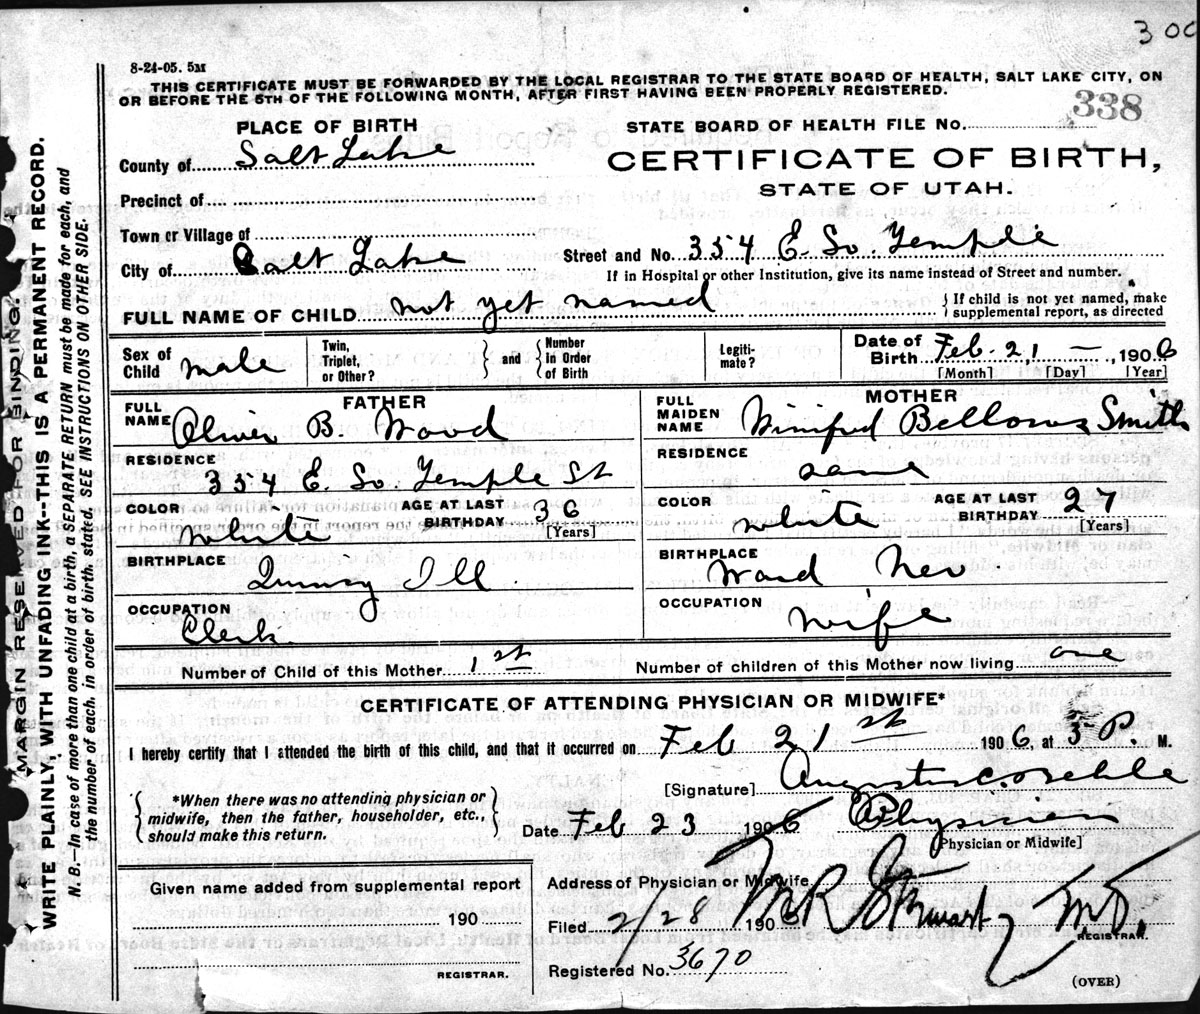 3 00
8-24-05. 5M
THIS CERTIFICATE MUST BE FORWARDED BY THE LOCAL REGISTRAR TO THE STATE BOARD OF HEALTH, SALT LAKE CITY, ON
OR BEFORE THE 5TH OF THE FOLLOWING MONTH, AFTER FIRST HAVING BEEN PROPERLY REGISTERED.
338
PLACE OF BIRTH
STATE BOARD OF HEALTH FILE No.
County of Salt Lake
CERTIFICATE OF BIRTH,
STATE OF UTAH.
Precinct of
Town or Village of
City of Salt Lake Street and No. 354 E. So. Temple
If in Hospital or other Institution, give its name instead of Street and number.
FULL NAME OF CHILD not yet named } If child is not yet named, make
supplemental report, as directed
Sex of Child male Twin, Triplet, or Other? } and { Number in Order of Birth Legiti-mate? Date of Birth Feb. 21 — , 1906
[Month] [Day] [Year]
FATHER MOTHER
FULL NAME Oliver B. Wood FULL MAIDEN NAME Winifred Bellows Smith
RESIDENCE 354 E. So. Temple St RESIDENCE same
COLOR white AGE AT LAST BIRTHDAY 36 [Years] COLOR white AGE AT LAST BIRTHDAY 27 [Years]
BIRTHPLACE Quincy Ill BIRTHPLACE Ward Nev
OCCUPATION Clerk OCCUPATION wife
Number of Child of this Mother 1st Number of children of this Mother now living one
CERTIFICATE OF ATTENDING PHYSICIAN OR MIDWIFE*
I hereby certify that I attended the birth of this child, and that it occurred on Feb 21st 1906, at 3 P. M.
[Signature]
{ *When there was no attending physician or
midwife, then the father, householder, etc.,
should make this return. }
Date Feb 23 1906 Physician
[Physician or Midwife]
Given name added from supplemental report
190
REGISTRAR.
Address of Physician or Midwife
Filed 2/28 1906 Stewart M.D.
REGISTRAR.
Registered No. 3670
(OVER)
MARGIN RESERVED FOR BINDING.
WRITE PLAINLY, WITH UNFADING INK--THIS IS A PERMANENT RECORD.
N. B.—In case of more than one child at a birth, a SEPARATE RETURN must be made for each, and
the number of each, in order of birth, stated. SEE INSTRUCTIONS ON OTHER SIDE.